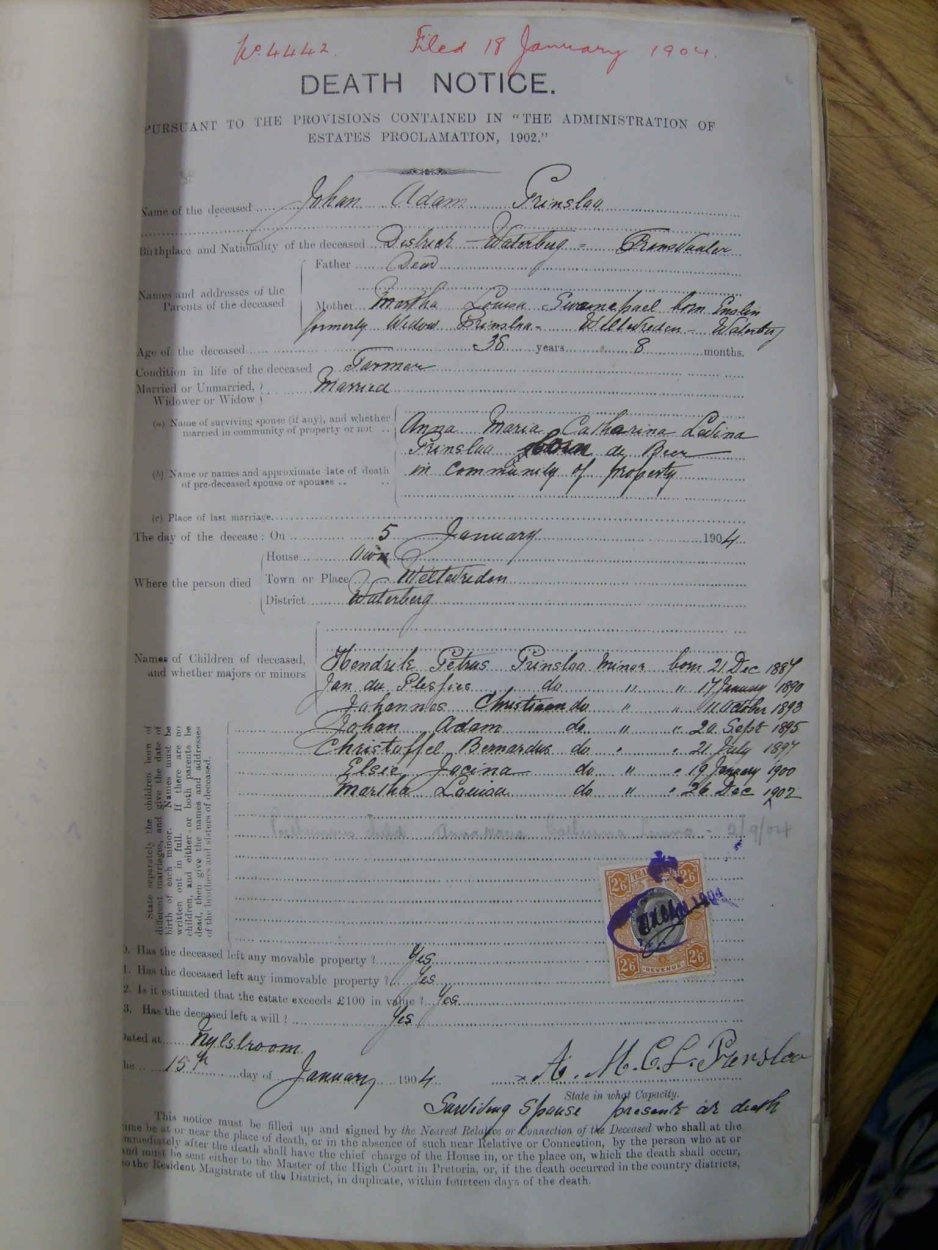 No. 4442. Filed 18 January 1904.
DEATH NOTICE.
PURSUANT TO THE PROVISIONS CONTAINED IN "THE ADMINISTRATION OF
ESTATES PROCLAMATION, 1902."
Name of the deceased Johan Adam Prinsloo
Birthplace and Nationality of the deceased District Waterberg - Transvaaler
Names and addresses of the Parents of the deceased
Father Dead
Mother Martha Louisa Swanepoel born Enslin
formerly Widow Prinsloo - Weltevreden - Waterberg
Age of the deceased 36 years 8 months.
Condition in life of the deceased Farmer
Married or Unmarried, Widower or Widow Married
(a) Name of surviving spouse (if any), and whether married in community of property or not
Anna Maria Catharina
Prinsloo born de Beer
in community of property
(b) Name or names and approximate date of death
of pre-deceased spouse or spouses
(c) Place of last marriage
The day of the decease: On 5 January 1904
Where the person died
House Own
Town or Place Weltevreden
District Waterberg
Names of Children of deceased,
and whether majors or minors
Hendrik Petrus Prinsloo minor born 21 Dec
Jan du Plessies do " " 17 January 1890
Johannes Christiaan do " " October 1893
Johan Adam do " " 20 Sept 1895
Christoffel Bernardus do " " 21 July 1897
Elsie Jacina do " " 19 January 1900
Martha Louisa do " " 26 Dec 1902
State separately the children born of
different marriages, and give the date of
birth of each minor. Names must be
written out in full. If there are no
children, and either or both parents be
dead, then give the names and addresses
of the brothers and sisters of deceased.
2/9/04
2/6 2/6
1904
2/6 REVENUE 2/6
0. Has the deceased left any movable property? Yes
1. Has the deceased left any immovable property? Yes
2. Is it estimated that the estate exceeds £100 in value? Yes
3. Has the deceased left a will? Yes
Dated at Nylstroom
the 15th day of January 1904
A. M. C. L. Prinsloo
State in what Capacity.
Surviving Spouse present at death
This notice must be filled up and signed by the Nearest Relative or Connection of the Deceased who shall at the
time be at or near the place of death, or in the absence of such near Relative or Connection, by the person who at or
immediately after the death shall have the chief charge of the House in, or the place on, which the death shall occur,
and must be sent either to the Master of the High Court in Pretoria, or, if the death occurred in the country districts,
to the Resident Magistrate of the District, in duplicate, within fourteen days of the death.